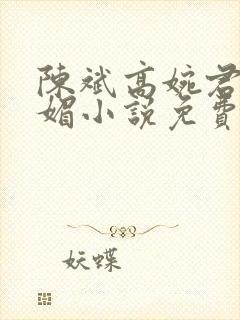 陳斌高婉君
媚小說免費
妖蝶